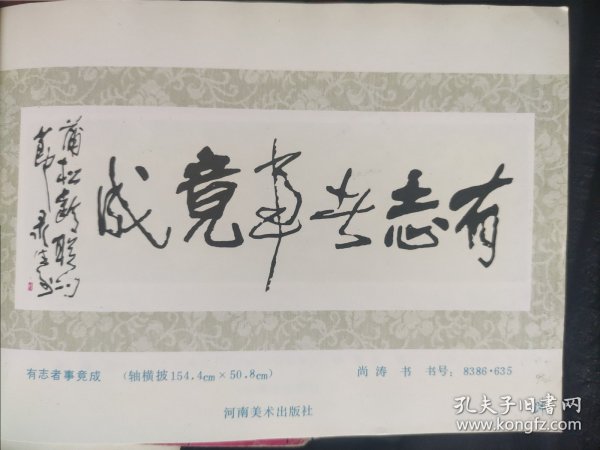 有志者事竟成
蒲松龄联句
节录
有志者事竟成 （轴横披154.4cm×50.8cm） 尚涛 书 书号：8386·635
河南美术出版社
孔夫子旧书网
kongfz.com